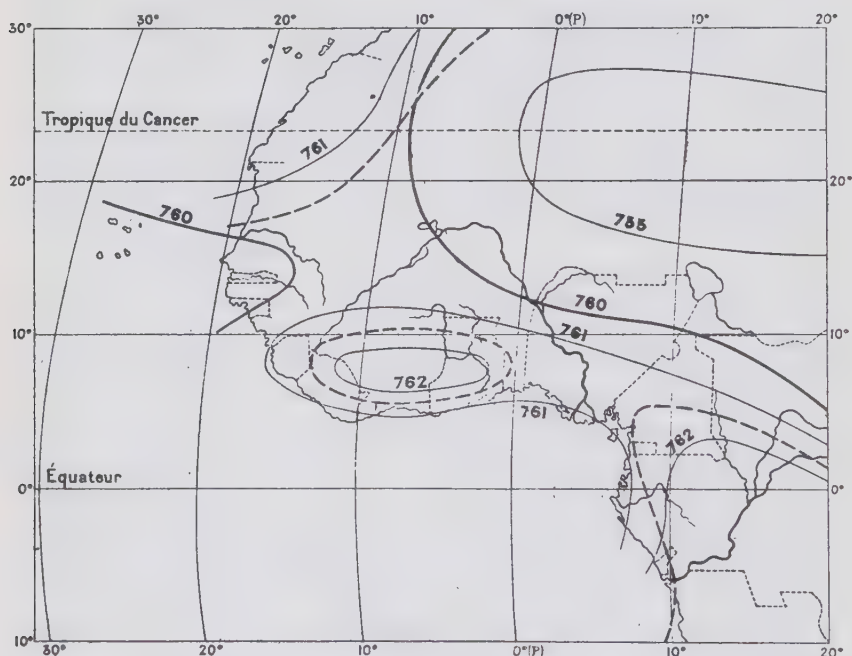 30° 20° 10° 0°(P) 10° 20°
30°
Tropique du Cancer
761
20° 20°
760
755
760
10° 761 10°
762
761
762
Équateur
0° 0°
10°
30° 20° 10° 0°(P) 10° 20°